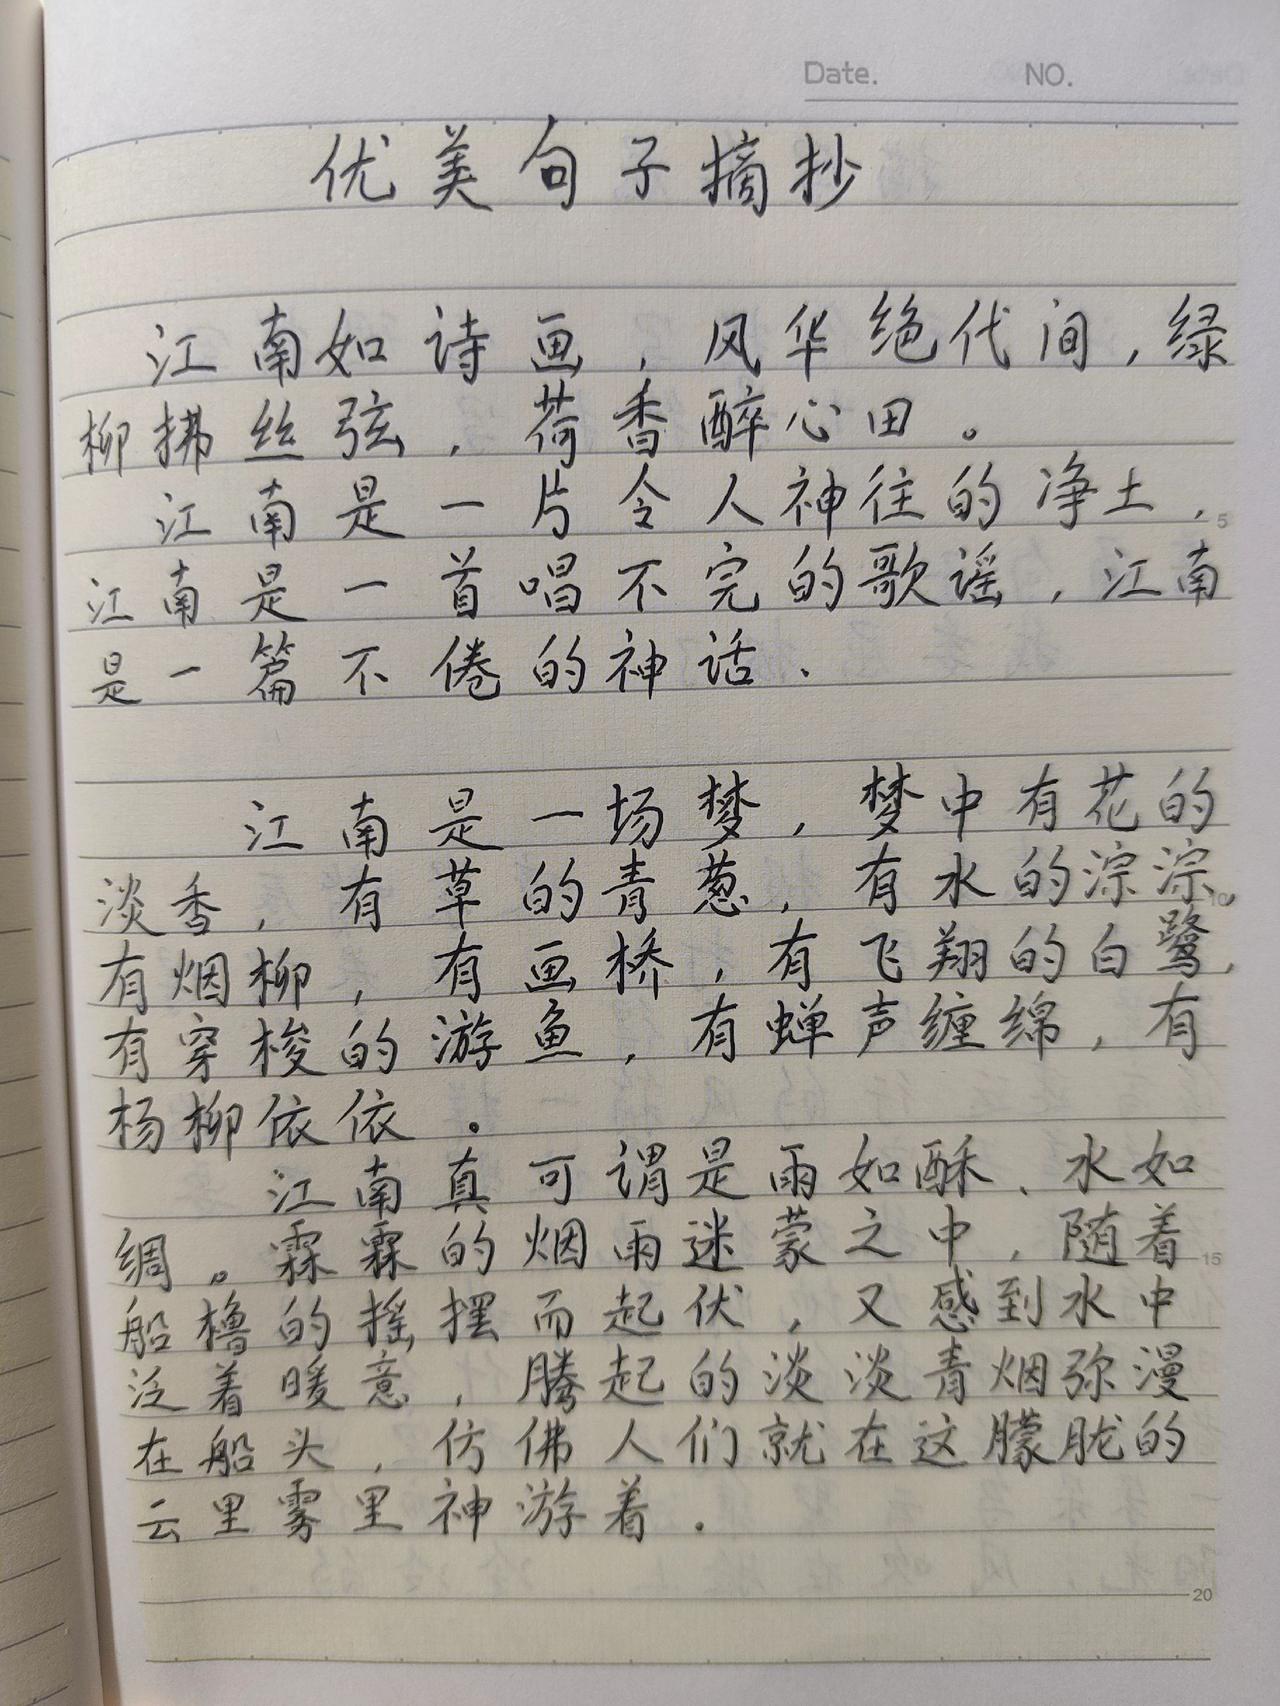 Date. NO.
优美句子摘抄
江南如诗画，风华绝代间，绿
柳拂丝弦，荷香醉心田。
江南是一片令人神往的净土，
5
江南是一首唱不完的歌谣，江南
是一篇不倦的神话.
江南是一场梦，梦中有花的
淡香，有草的青葱，有水的淙淙，
10
有烟柳，有画桥，有飞翔的白鹭，
有穿梭的游鱼，有蝉声缠绵，有
杨柳依依.
江南真可谓是雨如酥、水如
绸。霖霖的烟雨迷蒙之中，随着
15
船橹的摇摆而起伏，又感到水中
泛着暖意，腾起的淡淡青烟弥漫
在船头，仿佛人们就在这朦胧的
云里雾里神游着.
20